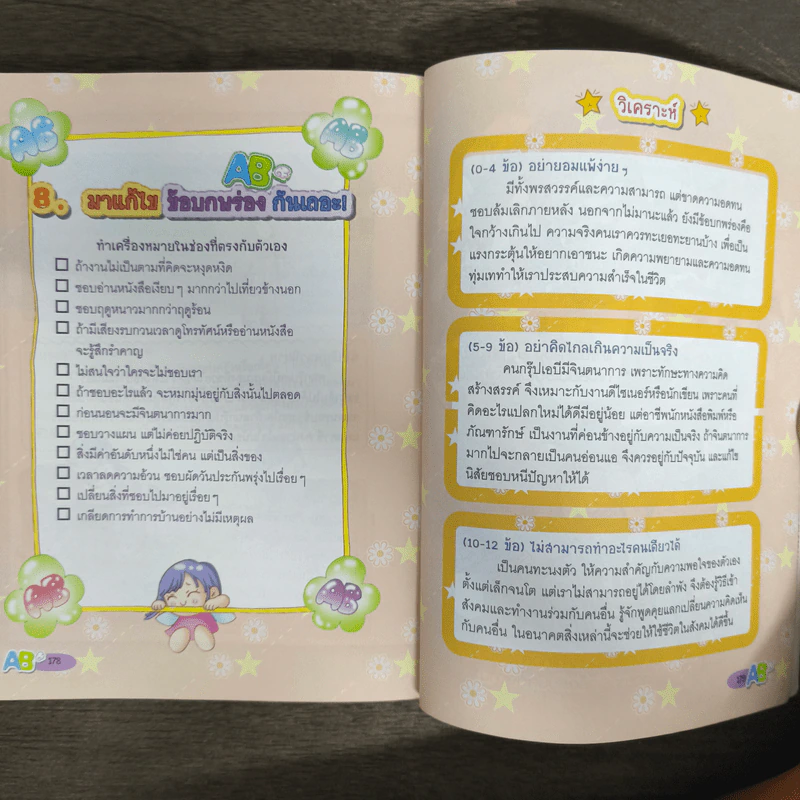 AB
AB
AB
8. มาแก้ไข ข้อบกพร่อง กันเถอะ!
ทำเครื่องหมายในช่องที่ตรงกับตัวเอง
ถ้างานไม่เป็นตามที่คิดจะหงุดหงิด
ชอบอ่านหนังสือเงียบๆ มากกว่าไปเที่ยวข้างนอก
ชอบฤดูหนาวมากกว่าฤดูร้อน
ถ้ามีเสียงรบกวนเวลาดูโทรทัศน์หรืออ่านหนังสือ
จะรู้สึกรำคาญ
ไม่สนใจว่าใครจะไม่ชอบเรา
ถ้าชอบอะไรแล้ว จะหมกมุ่นอยู่กับสิ่งนั้นไปตลอด
ก่อนนอนจะมีจินตนาการมาก
ชอบวางแผน แต่ไม่ค่อยปฏิบัติจริง
สิ่งมีค่าอันดับหนึ่งไม่ใช่คน แต่เป็นสิ่งของ
เวลาลดความอ้วน ชอบผัดวันประกันพรุ่งไปเรื่อยๆ
เปลี่ยนสิ่งที่ชอบไปมาอยู่เรื่อยๆ
เกลียดการทำการบ้านอย่างไม่มีเหตุผล
AB
AB
AB 178
วิเคราะห์
(0-4 ข้อ) อย่ายอมแพ้ง่ายๆ
มีทั้งพรสวรรค์และความสามารถ แต่ขาดความอดทน
ชอบล้มเลิกภายหลัง นอกจากไม่มานะแล้ว ยังมีข้อบกพร่องคือ
ใจกว้างเกินไป ความจริงคนเราควรทะเยอทะยานบ้าง เพื่อเป็น
แรงกระตุ้นให้อยากเอาชนะ เกิดความพยายามและความอดทน
ทุ่มเททำให้เราประสบความสำเร็จในชีวิต
(5-9 ข้อ) อย่าคิดไกลเกินความเป็นจริง
คนกรุ๊ปเอบีมีจินตนาการ เพราะทักษะทางความคิด
สร้างสรรค์ จึงเหมาะกับงานดีไซเนอร์หรือนักเขียน เพราะคนที่
คิดอะไรแปลกใหม่ได้ดีมีอยู่น้อย แต่อาชีพนักหนังสือพิมพ์หรือ
ภัณฑารักษ์ เป็นงานที่ค่อนข้างอยู่กับความเป็นจริง ถ้าจินตนาการ
มากไปจะกลายเป็นคนอ่อนแอ จึงควรอยู่กับปัจจุบัน และแก้ไข
นิสัยชอบหนีปัญหาให้ได้
(10-12 ข้อ) ไม่สามารถทำอะไรคนเดียวได้
เป็นคนทะนงตัว ให้ความสำคัญกับความพอใจของตัวเอง
ตั้งแต่เล็กจนโต แต่เราไม่สามารถอยู่ได้โดยลำพัง จึงต้องรู้วิธีเข้า
สังคมและทำงานร่วมกับคนอื่น รู้จักพูดคุยแลกเปลี่ยนความคิดเห็น
กับคนอื่น ในอนาคตสิ่งเหล่านี้จะช่วยให้ใช้ชีวิตในสังคมได้ดีขึ้น
AB